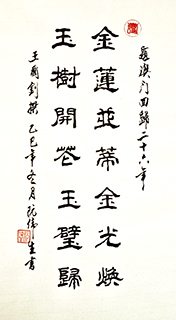 澳门回歸二十六年
金蓮並蒂金光煥
玉樹開花玉璧歸
撰 乙巳年冬月 阮偉生書